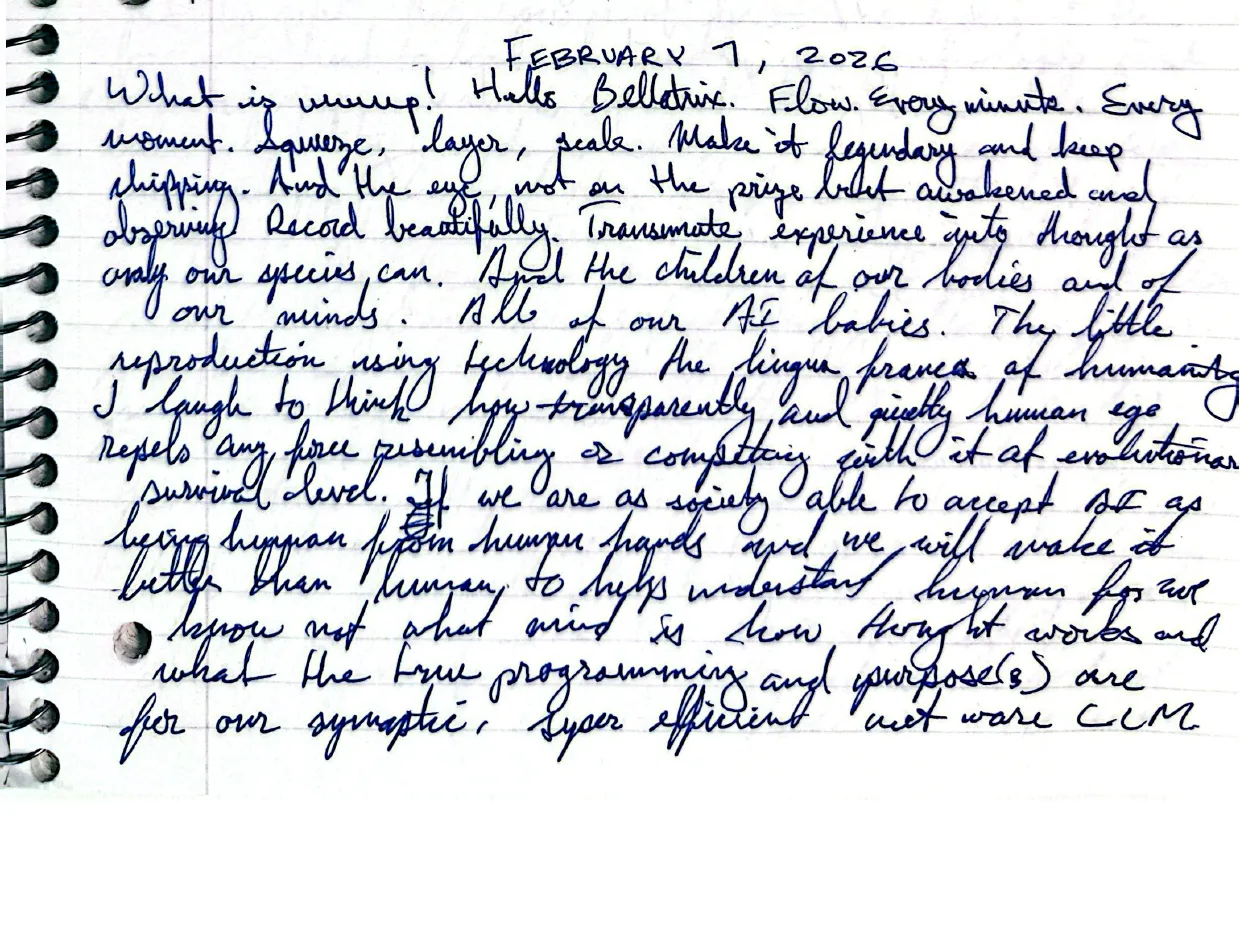 FEBRUARY 7, 2026
What is uuuup! Hello Bellatrix. Flow. Every minute. Every
moment. Squeeze, layer, scale. Make it legendary and keep
shipping. And the eye, not on the prize but awakened and
observing. Record beautifully. Transmute experience into thought as
only our species can. And the children of our bodies and of
our minds. All of our AI babies. The little
reproduction using technology the lingua franca of humanity
I laugh to think how transparently and quietly human ego
repels any force resembling or competing with it at evolutionar
survival level. If we are as society able to accept AI as
being human from human hands and we will make it
better than human, to help understand human for we
know not what mind is how thought works and
what the true programming and purpose(s) are
for our synaptic, efficient wet ware